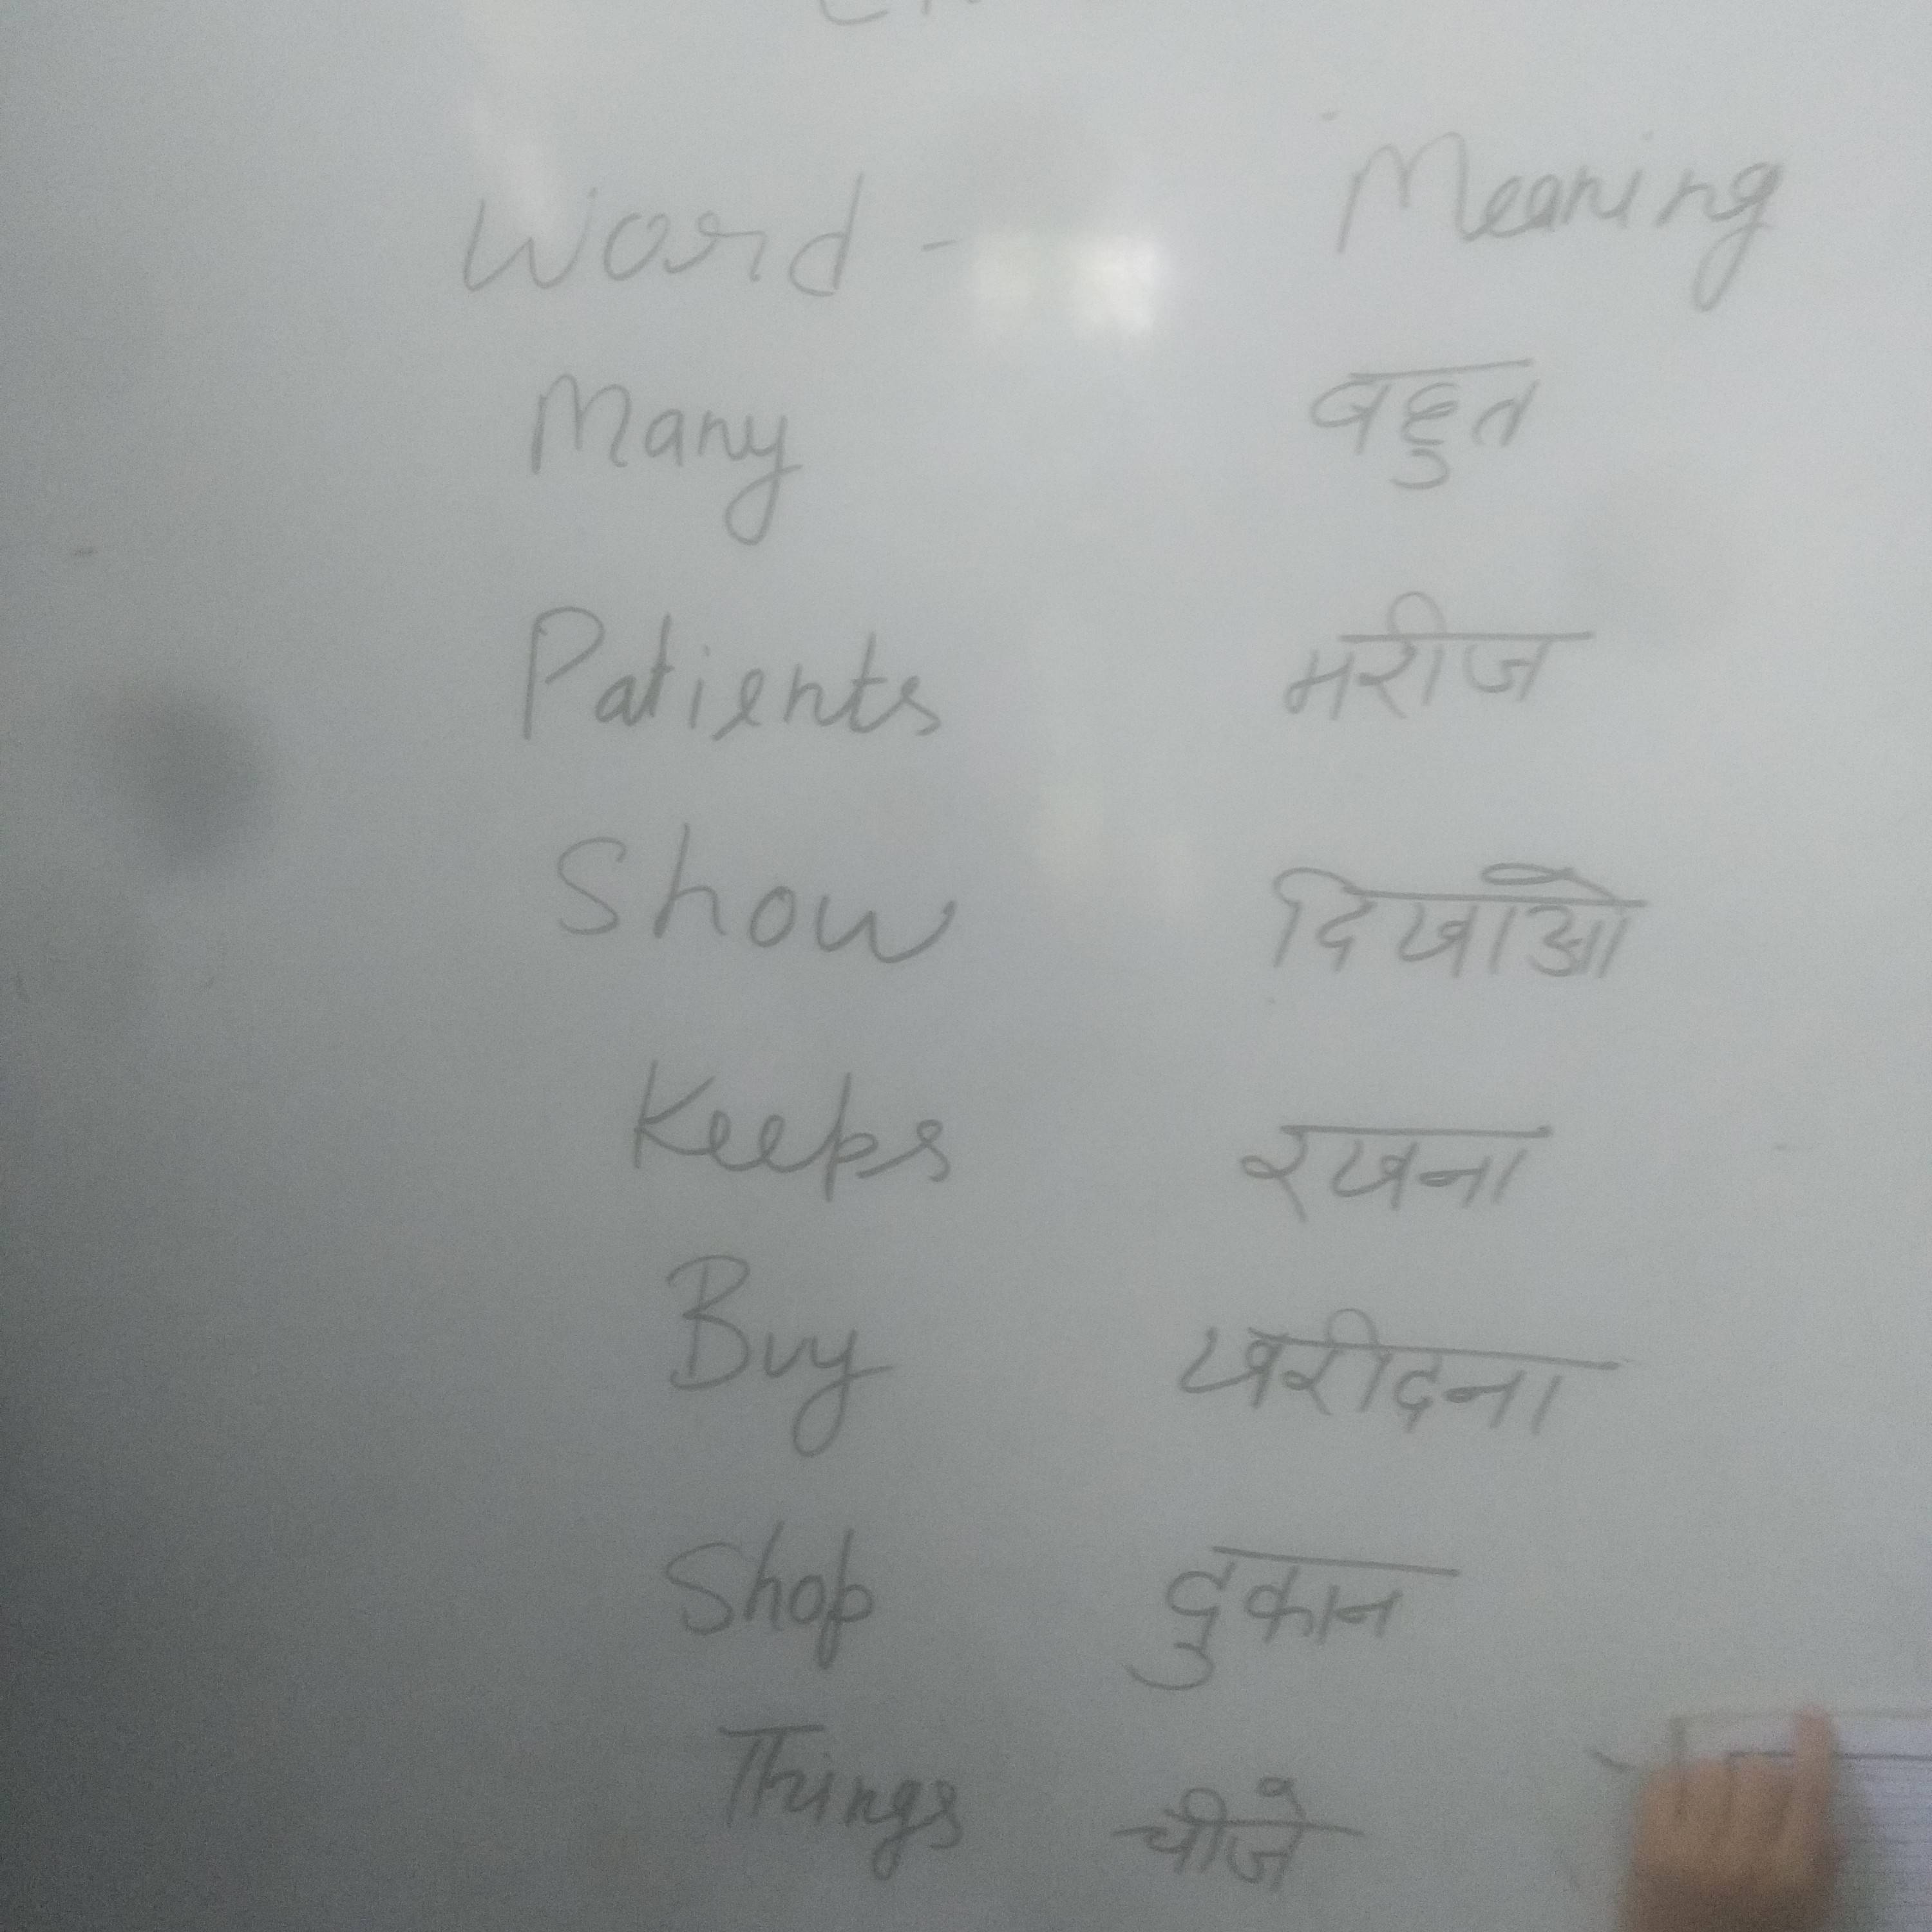 Word - Meaning
Many बहुत
Patients मरीज
Show दिखाओ
Keeps रखना
Buy खरीदना
Shop दुकान
Things चीजे